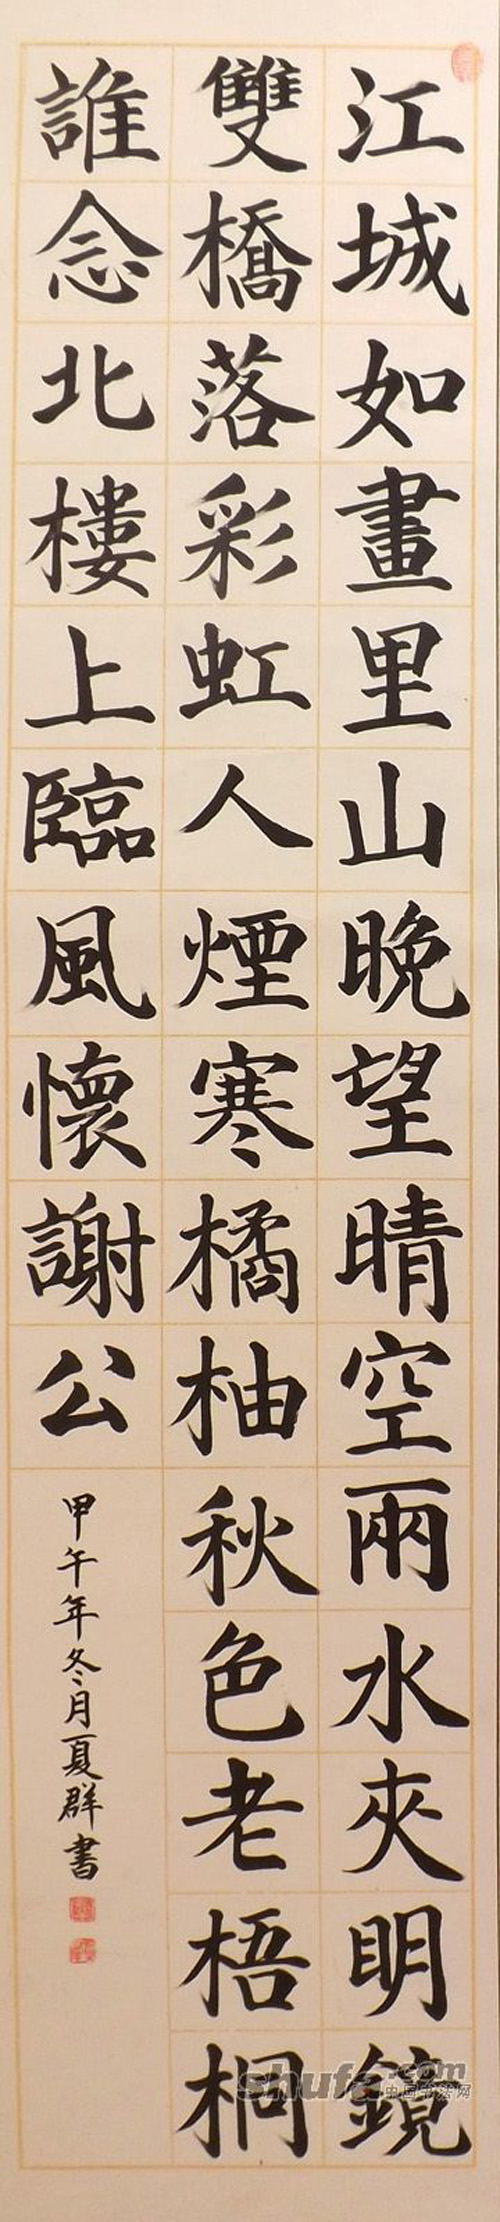 江城如畫里山晚望晴空兩水夾明鏡
雙橋落彩虹人煙寒橘柚秋色老梧桐
誰念北樓上臨風懷謝公
甲午年冬月夏群書
shufa.com
中国书法网